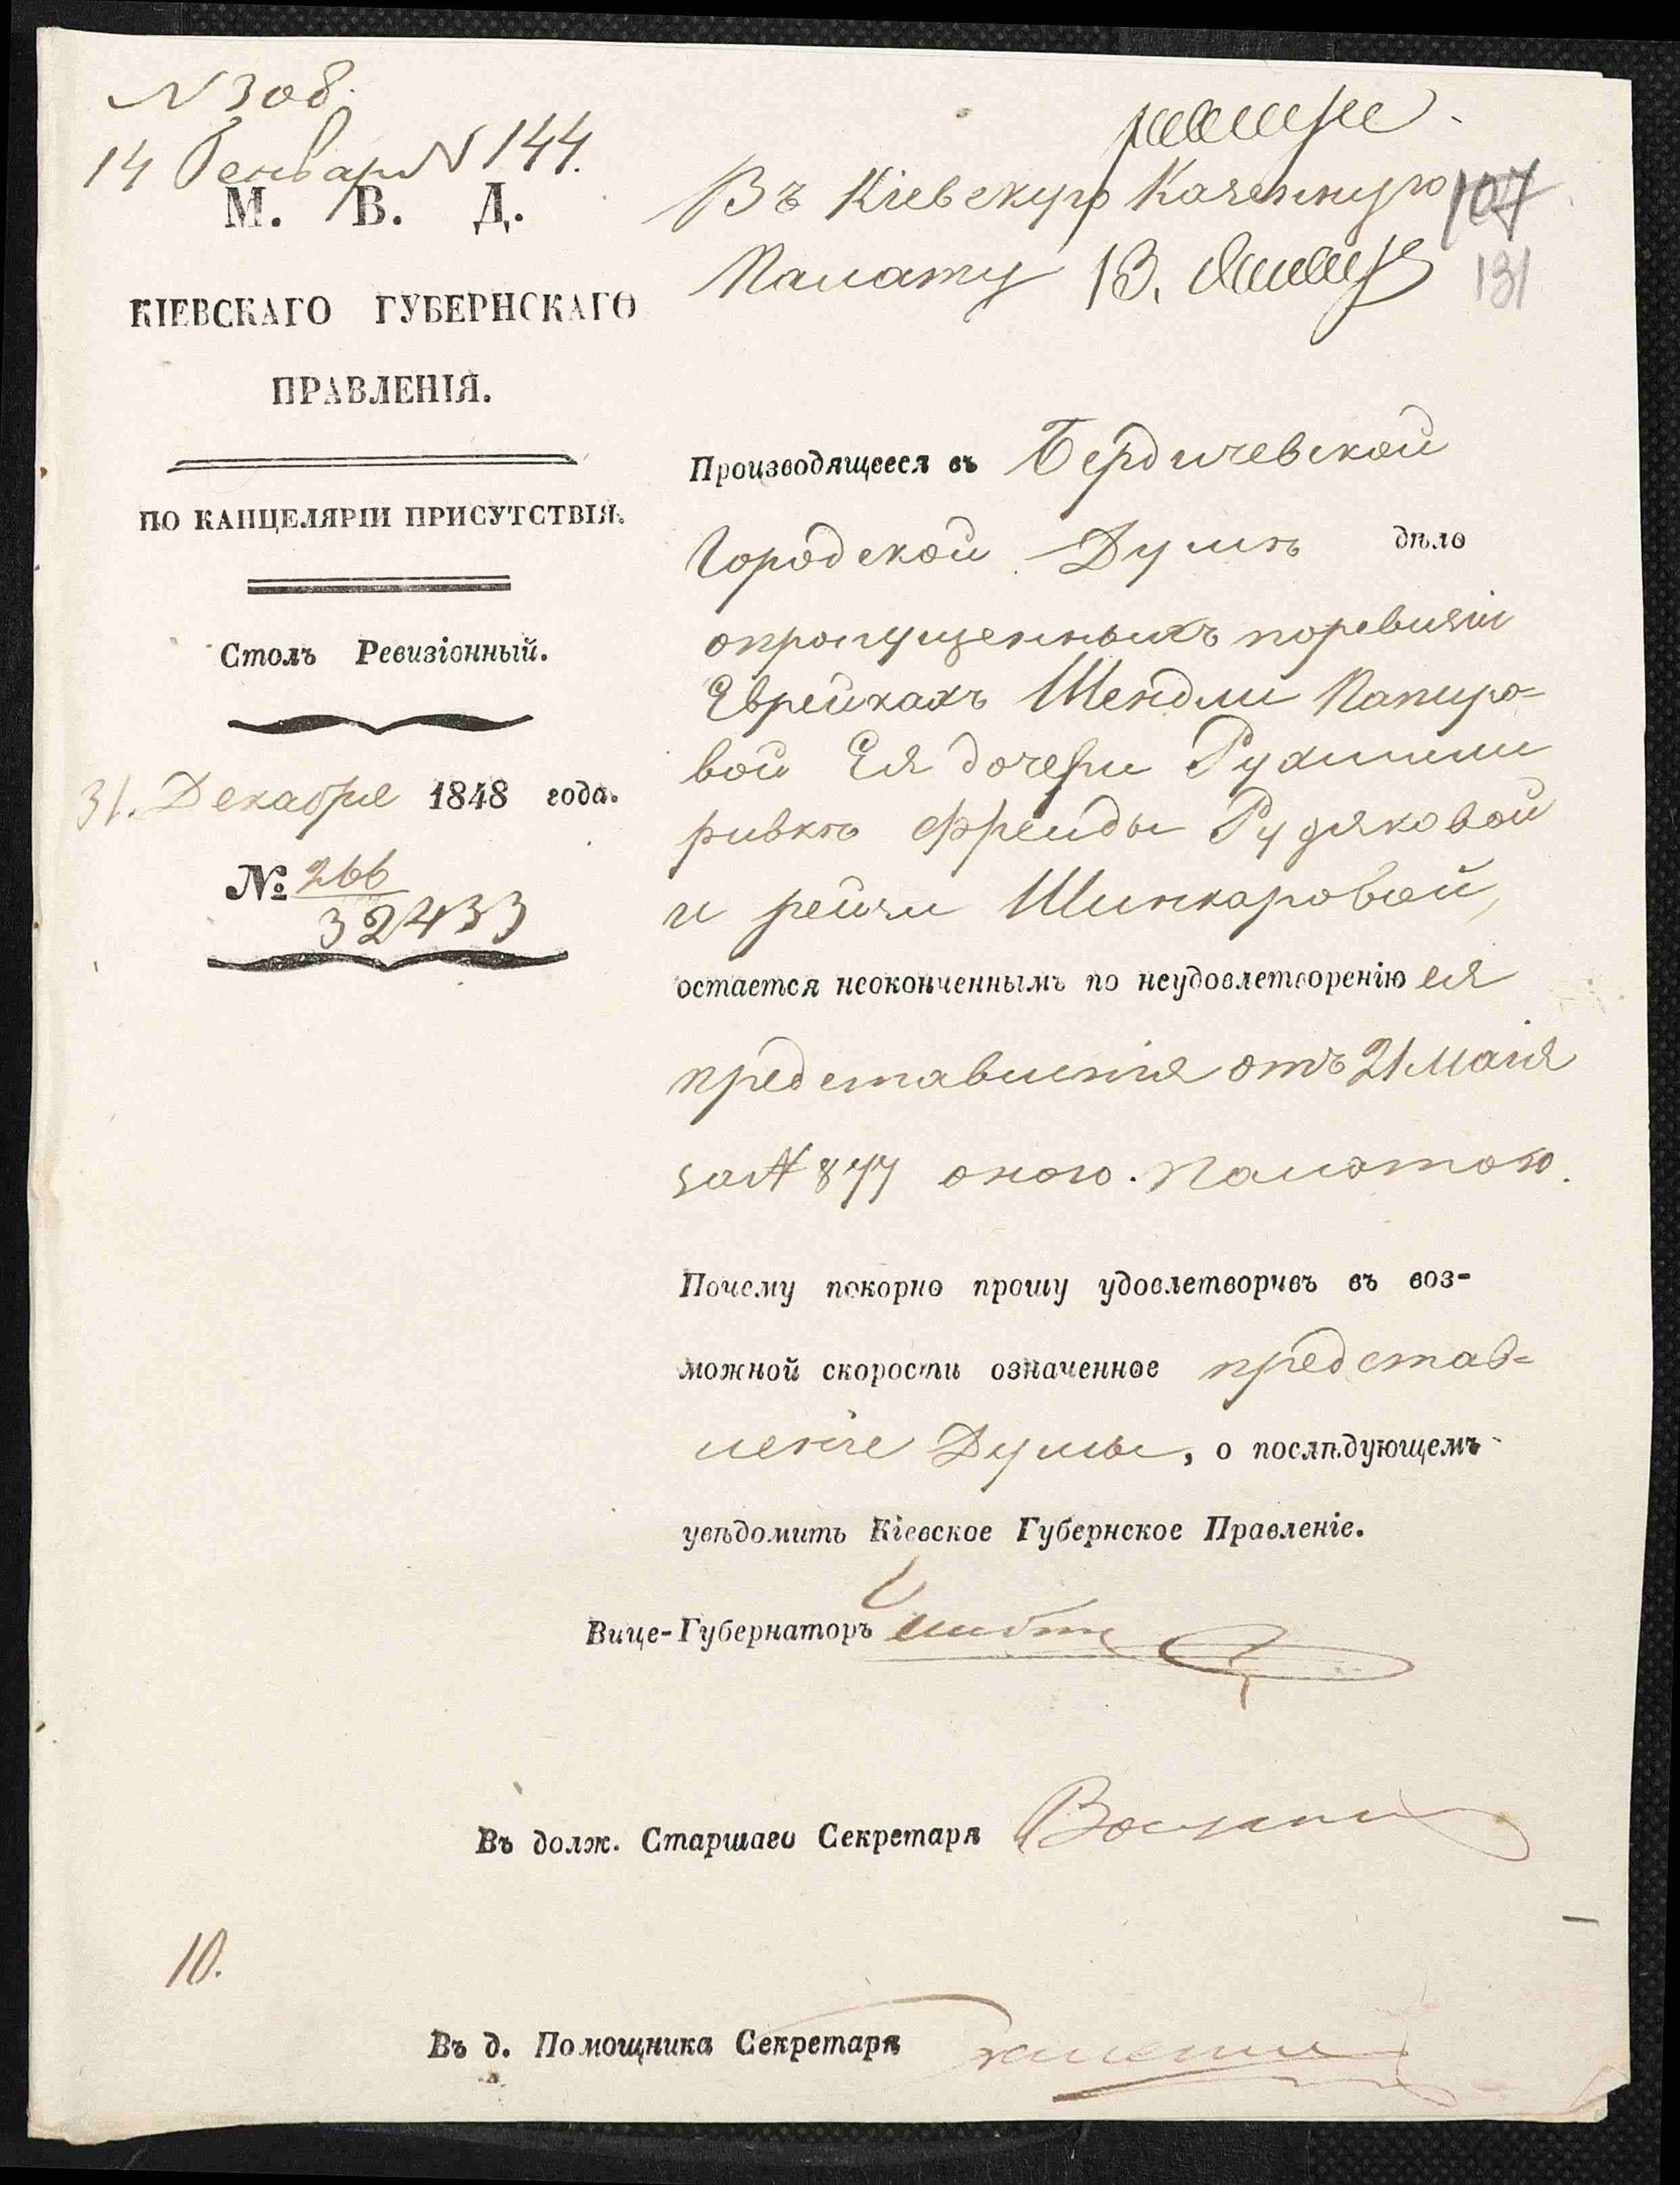 N 308.
14 Генваря N 144.
М. В. Д.
КІЕВСКАГО ГУБЕРНСКАГО
ПРАВЛЕНІЯ.
ПО КАНЦЕЛЯРІИ ПРИСУТСТВІЯ.
Столъ Ревизіонный.
31. Декабря 1848 года.
№ 266
32433
Въ Кіевскую Казенную
107
Палату 13. Января
131
Производящееся въ Бердичевской
Городской Думѣ дѣло
опропущенныхъ поревизіи
Еврейкахъ Шендли Папиро=
вой Ея дочери Рухлии
ривкѣ Фрейды Рудяковой
и рейзи Шинкаровой,
остается неоконченнымъ по неудовлетворенію ея
представленія отъ 21 Маія
за N 877 оною Палатою.
Почему покорно прошу удовлетворивъ въ воз-
можной скорости означенное представ=
леніе Думы, о послѣдующемъ
увѣдомить Кіевское Губернское Правленіе.
Вице-Губернаторъ
Въ долж. Старшаго Секретаря
10.
Въ д. Помощника Секретаря